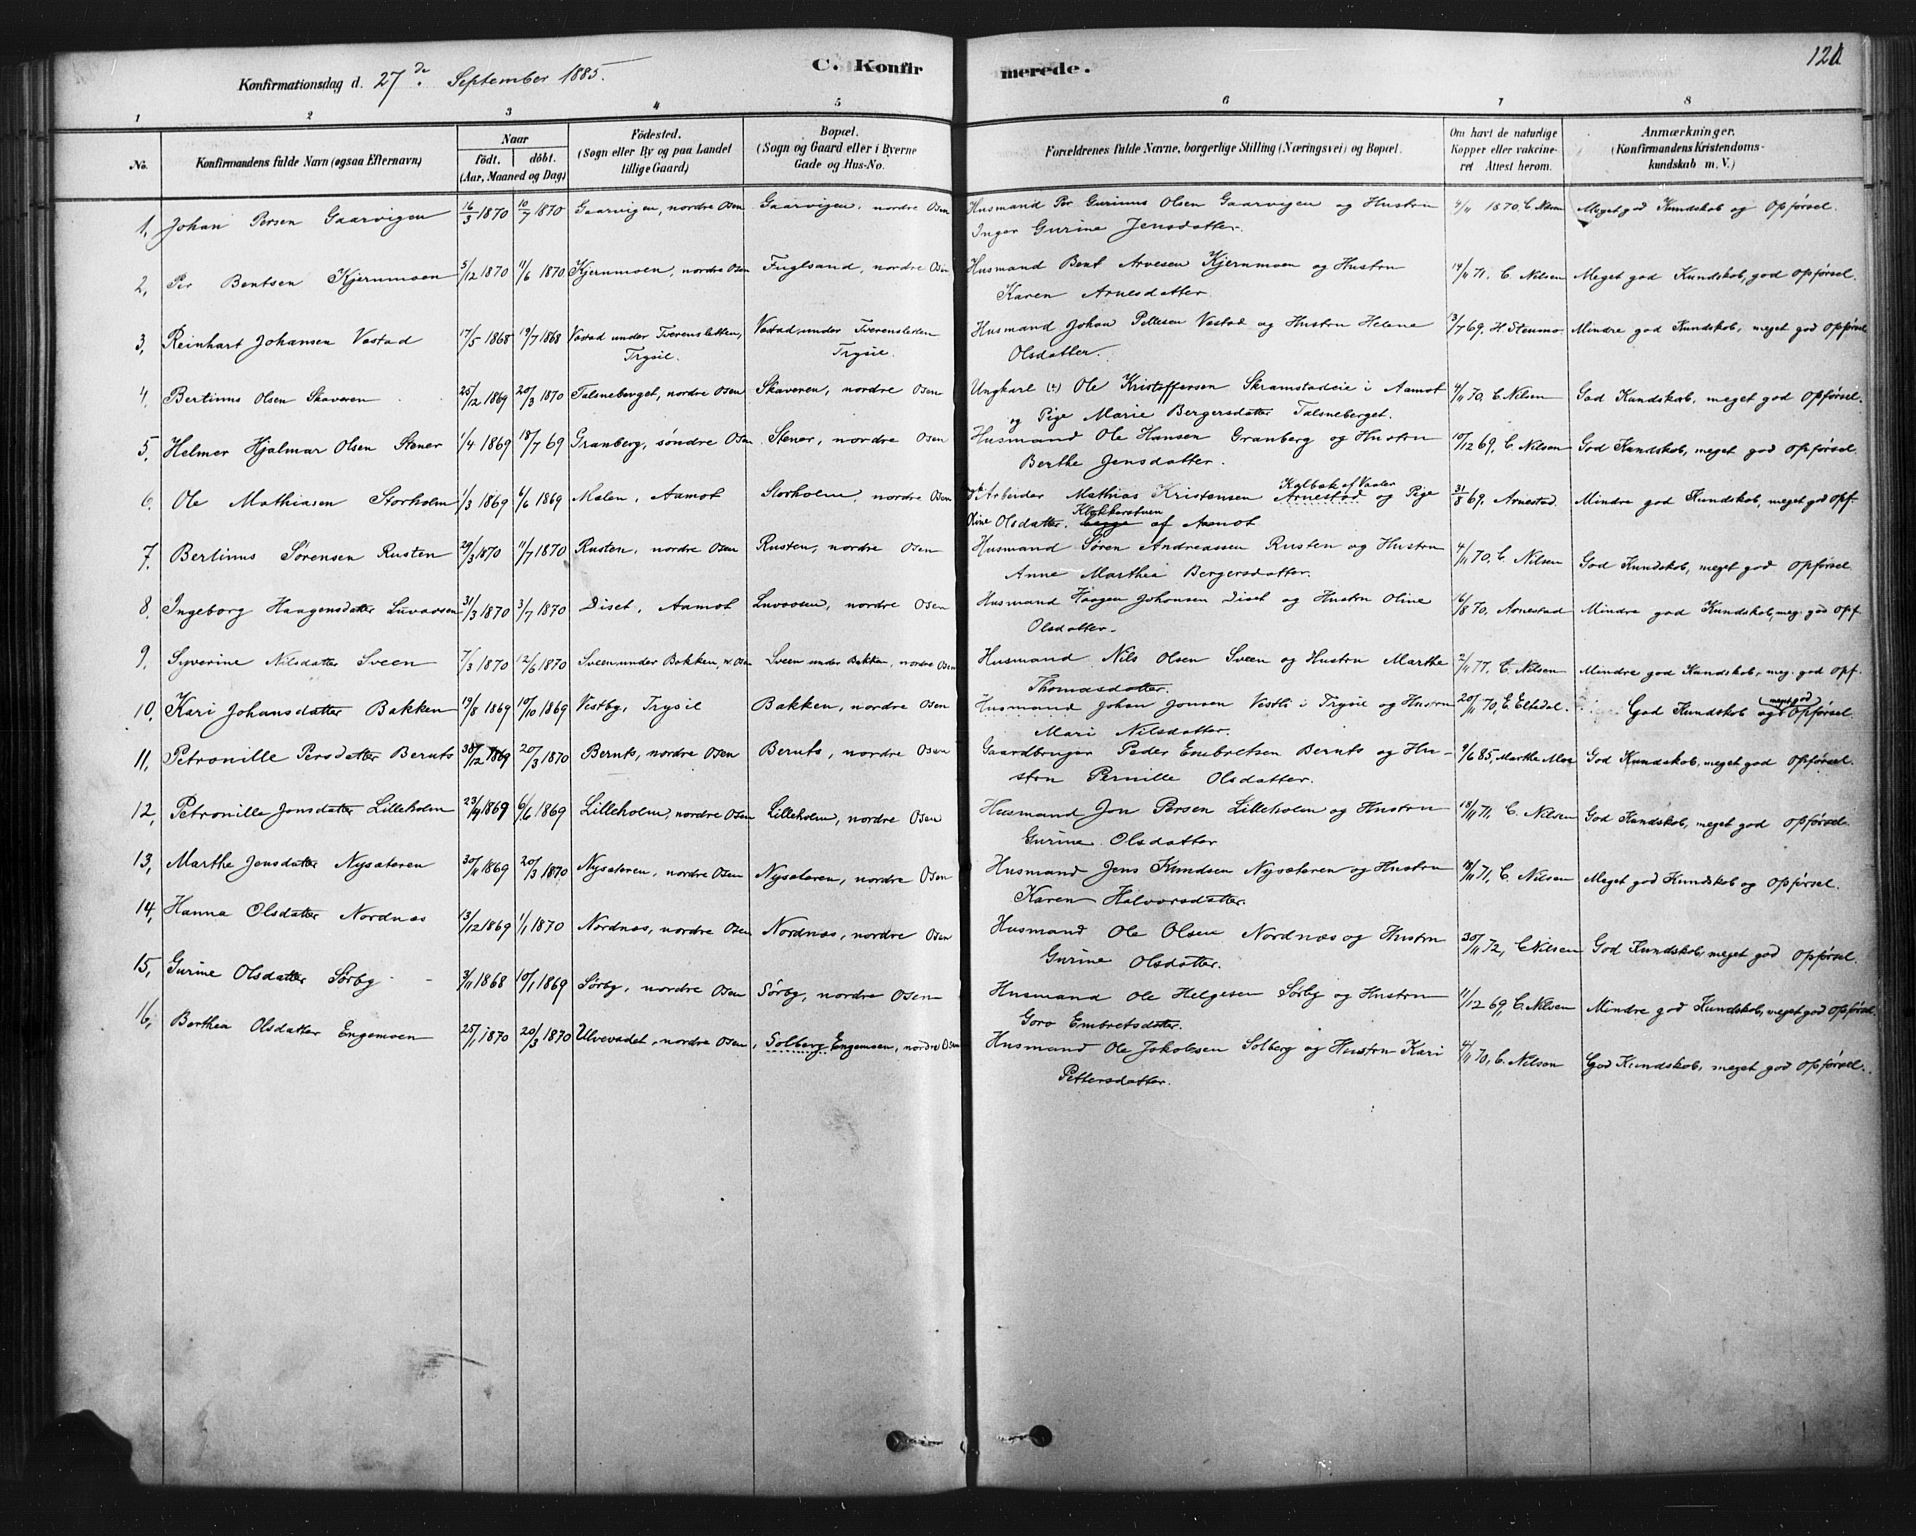 C. Konfirmerede.
121
Konfirmationsdag d. 27de September 1885.
1 2 3 4 5 6 7 8
No. Konfirmandens fulde Navn (ogsaa Efternavn) Naar født. døbt. (Aar, Maaned og Dag) Fødested. (Sogn eller By og paa Landet tillige Gaard) Bopæl. (Sogn og Gaard eller i Byerne Gade og Hus-No. Forældrenes fulde Navne, borgerlige Stilling (Næringsvei) og Bopæl. Om havt de naturlige Kopper eller vakcineret Attest herom. Anmærkninger. (Konfirmandens Kristendomskundskab m. V.)
1. Johan Persen Gaarvigen 16/3 1870 10/7 1870 Gaarvigen, nordre Osen Gaarvigen, nordre Osen Husmand Per Gurinus Olsen Gaarvigen og Hustru 4/11 1870, C. Nilsen Meget god Kundskab og Opførsel.
Inger Gurine Jensdatter.
2. Per Bentsen Kjernmoen 5/12 1870 11/6 1870 Kjernmoen, nordre Osen Fuglsand, nordre Osen Husmand Bent Arvesen Kjernmoen og Hustru 14/11 71, C. Nilsen Meget god Kundskab, god Opførsel.
Karen Arnesdatter.
3. Reinhart Johansen Vestad 17/5 1868 19/7 1868 Vestad under Tverensletten, Vestad under Tverensletten Husmand Johan Pettesen Vestad og Hustru Helene 3/7 69, H. Stenmo Mindre god Kundskab, meget god Opførsel
Trysil. Trysil. Olsdatter.
4. Bertinus Olsen Skaveren 25/12 1869 20/3 1870 Talsneberget, nordre Osen Skaveren, nordre Osen Ungkarl Ole Kristoffersen Skramstadeie i Aamot 4/11 70, C. Nilsen God Kundskab, meget god Opførsel.
og Pige Marie Bergersdatter Talsneberget.
5. Helmer Hjalmar Olsen Stener 1/4 1869 18/7 69 Granberg, søndre Osen Stener, nordre Osen Husmand Ole Hansen Granberg og Hustru 10/12 69, C. Nilsen God Kundskab, meget god Opførsel.
Berthe Jensdatter.
6. Ole Mathiasen Storholm 1/3 1869 6/6 1869 Malen, Aamot Storholm, nordre Osen Arbeider Mathias Kristensen Arnestad Kolbak af Vaaler og Pige 31/8 69, Arnestad. Mindre god Kundskab, meget god Opf.
Oline Olsdatter. Klokkerstuen begge af Aamot
7. Bertinus Sørensen Rusten 29/3 1870 11/7 1870 Rusten, nordre Osen Rusten, nordre Osen Husmand Søren Andreassen Rusten og Hustru 4/11 70, C. Nilsen God Kundskab, meget god Opførsel.
Anne Marthea Bergersdatter.
8. Ingeborg Haagensdatter Luvaasen 31/3 1870 3/7 1870 Diset, Aamot Luvaasen, nordre Osen Husmand Haagen Johansen Diset og Hustru Oline 16/8 70, Arnestad Mindre god Kundskab, meg. god Opf.
Olsdatter.
9. Syverine Nilsdatter Sveen 7/3 1870 12/6 1870 Sveen under Bakken, n. Osen Sveen under Bakken, nordre Osen Husmand Nils Olsen Sveen og Hustru Marthe 2/11 77, C. Nilsen Mindre god Kundskab, meg. god Opf.
Thomasdatter.
10. Kari Johansdatter Bakken 19/8 1869 10/10 1869 Vestby, Trysil Bakken, nordre Osen Husmand Johan Jonsen Vestb. i Trysil og Hustru 20/11 70, E. Eltdal. God Kundskab og meget god Opførsel.
Mari Nilsdatter.
11. Petronille Persdatter Beruts 30/12 1869 20/3 1870 Beruts, nordre Osen Beruts, nordre Osen Gaardbruger Peder Embretsen Beruts og Hu- 9/6 85, Marthe Moe God Kundskab, meget god Opførsel.
stru Pernille Olsdatter.
12. Petronille Jonsdatter Lilleholm 23/4 1869 6/6 1869 Lilleholm, nordre Osen Lilleholm, nordre Osen Husmand Jon Persen Lilleholm og Hustru 18/11 71, C. Nilsen God Kundskab, meget god Opførsel.
Gurine Olsdatter
13. Marthe Jensdatter Nysæteren 30/11 1869 20/3 1870 Nysæteren, nordre Osen Nysæteren, nordre Osen Husmand Jens Knudsen Nysæteren og Hustru 18/11 71, C. Nilsen Meget god Kundskab og Opførsel.
Karen Halvorsdatter.
14. Hanna Olsdatter Nordnæs 13/12 1869 1/1 1870 Nordnæs, nordre Osen Nordnæs, nordre Osen Husmand Ole Olsen Nordnæs og Hustru 30/11 72, C. Nilsen God Kundskab, meget god Opførsel.
Gurine Olsdatter.
15. Gurine Olsdatter Sørby 3/11 1868 10/1 1869 Sørby, nordre Osen Sørby, nordre Osen Husmand Ole Helgesen Sørby og Hustru 11/12 69, C. Nilsen Mindre god Kundskab, meget god Opførsel.
Goro Embretsdatter.
16. Berthea Olsdatter Engemoen 25/1 1870 20/3 1870 Ulvevadet, nordre Osen, Solberg Engemoen, nordre Osen Husmand Ole Jakobsen Solberg og Hustru Kari 4/11 70, C. Nilsen God Kundskab, meget god Opførsel.
Pettersdatter.